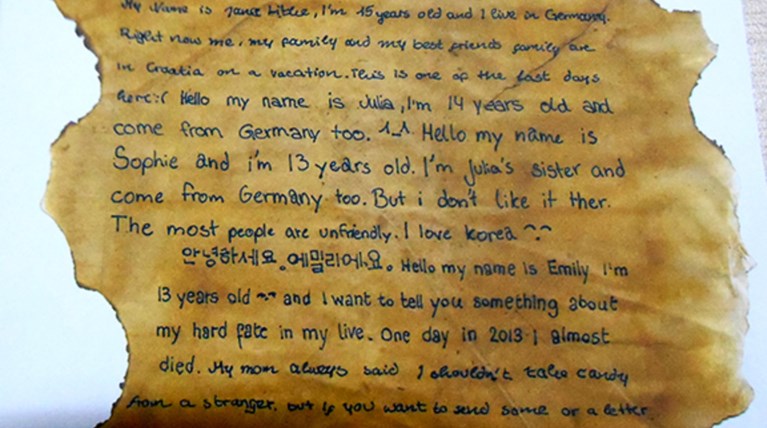 My name is Jana Libbie, I'm 15 years old and I live in Germany.
Right now me, my family and my best friends family are
in Croatia on a vacation. This is one of the last days
here :( Hello my name is Julia, I'm 14 years old and
come from Germany too. ^_^ Hello my name is
Sophie and i'm 13 years old. I'm Julia's sister and
come from Germany too. But i don't like it ther.
The most people are unfriendly. I love korea ^.^
안녕하세요. 에밀리에요. Hello my name is Emily I'm
13 years old ^^ and I want to tell you something about
my hard fate in my live. One day in 2013 i almost
died. My mom always said I shouldn't take candy
from a stranger, but if you want to send some or a letter